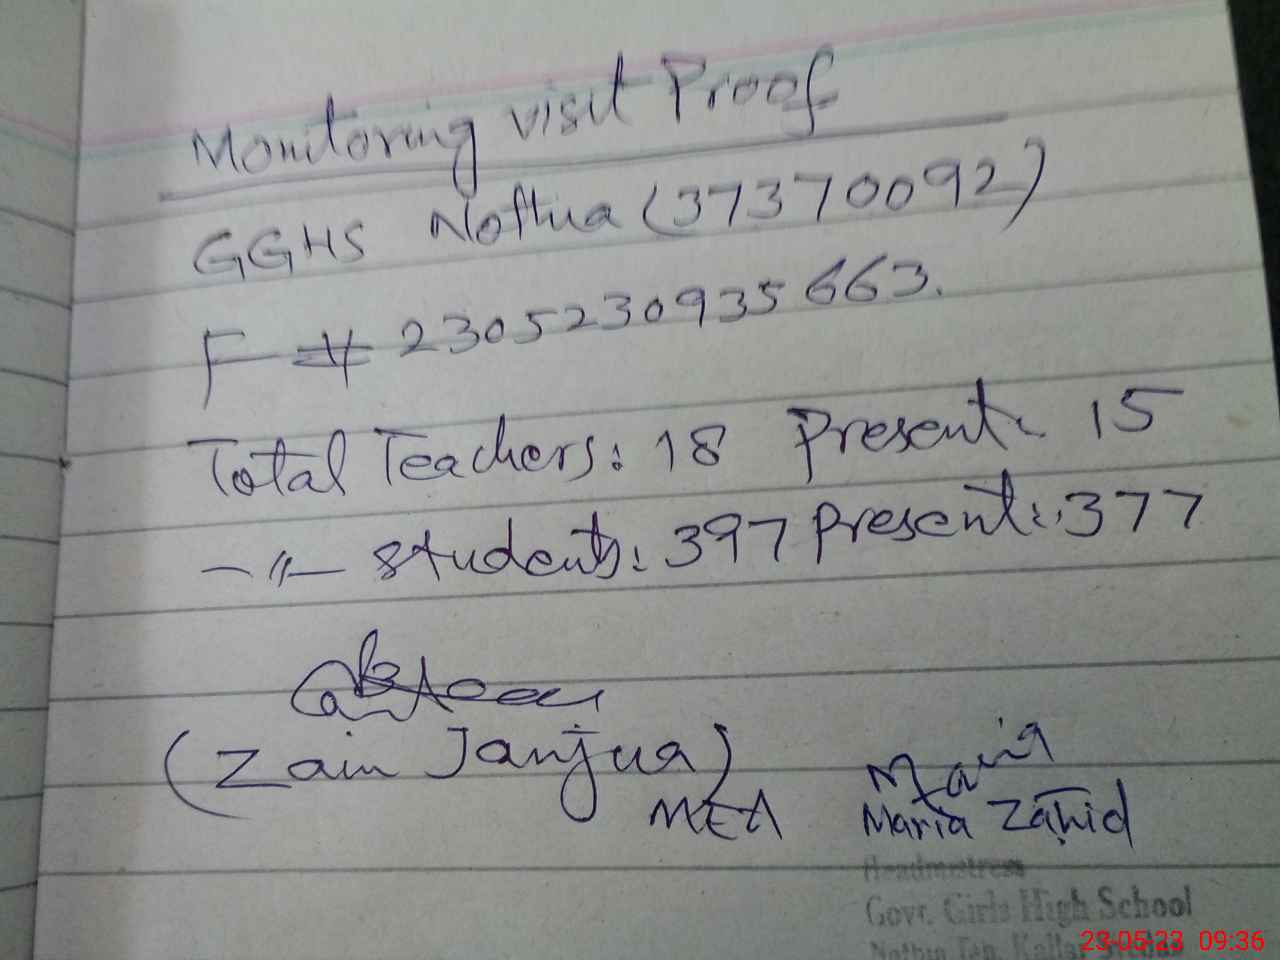 Monitoring visit Proof
GGHS Nothia (37370092)
F # 2305230935663.
Total Teachers: 18 Present: 15
-〃- students: 397 Present: 377
(Zain Janjua)
MEA
Maria
Maria Zahid
Headmistress
Govt. Girls High School
Kallar
23-05-23 09:36